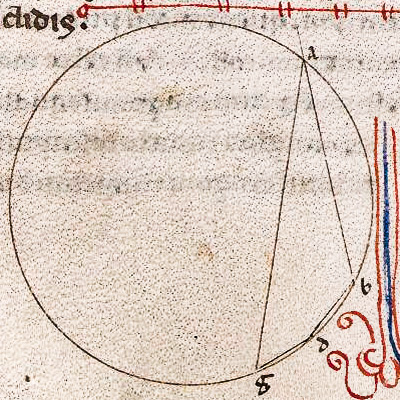 clidis.
a
b
d
g